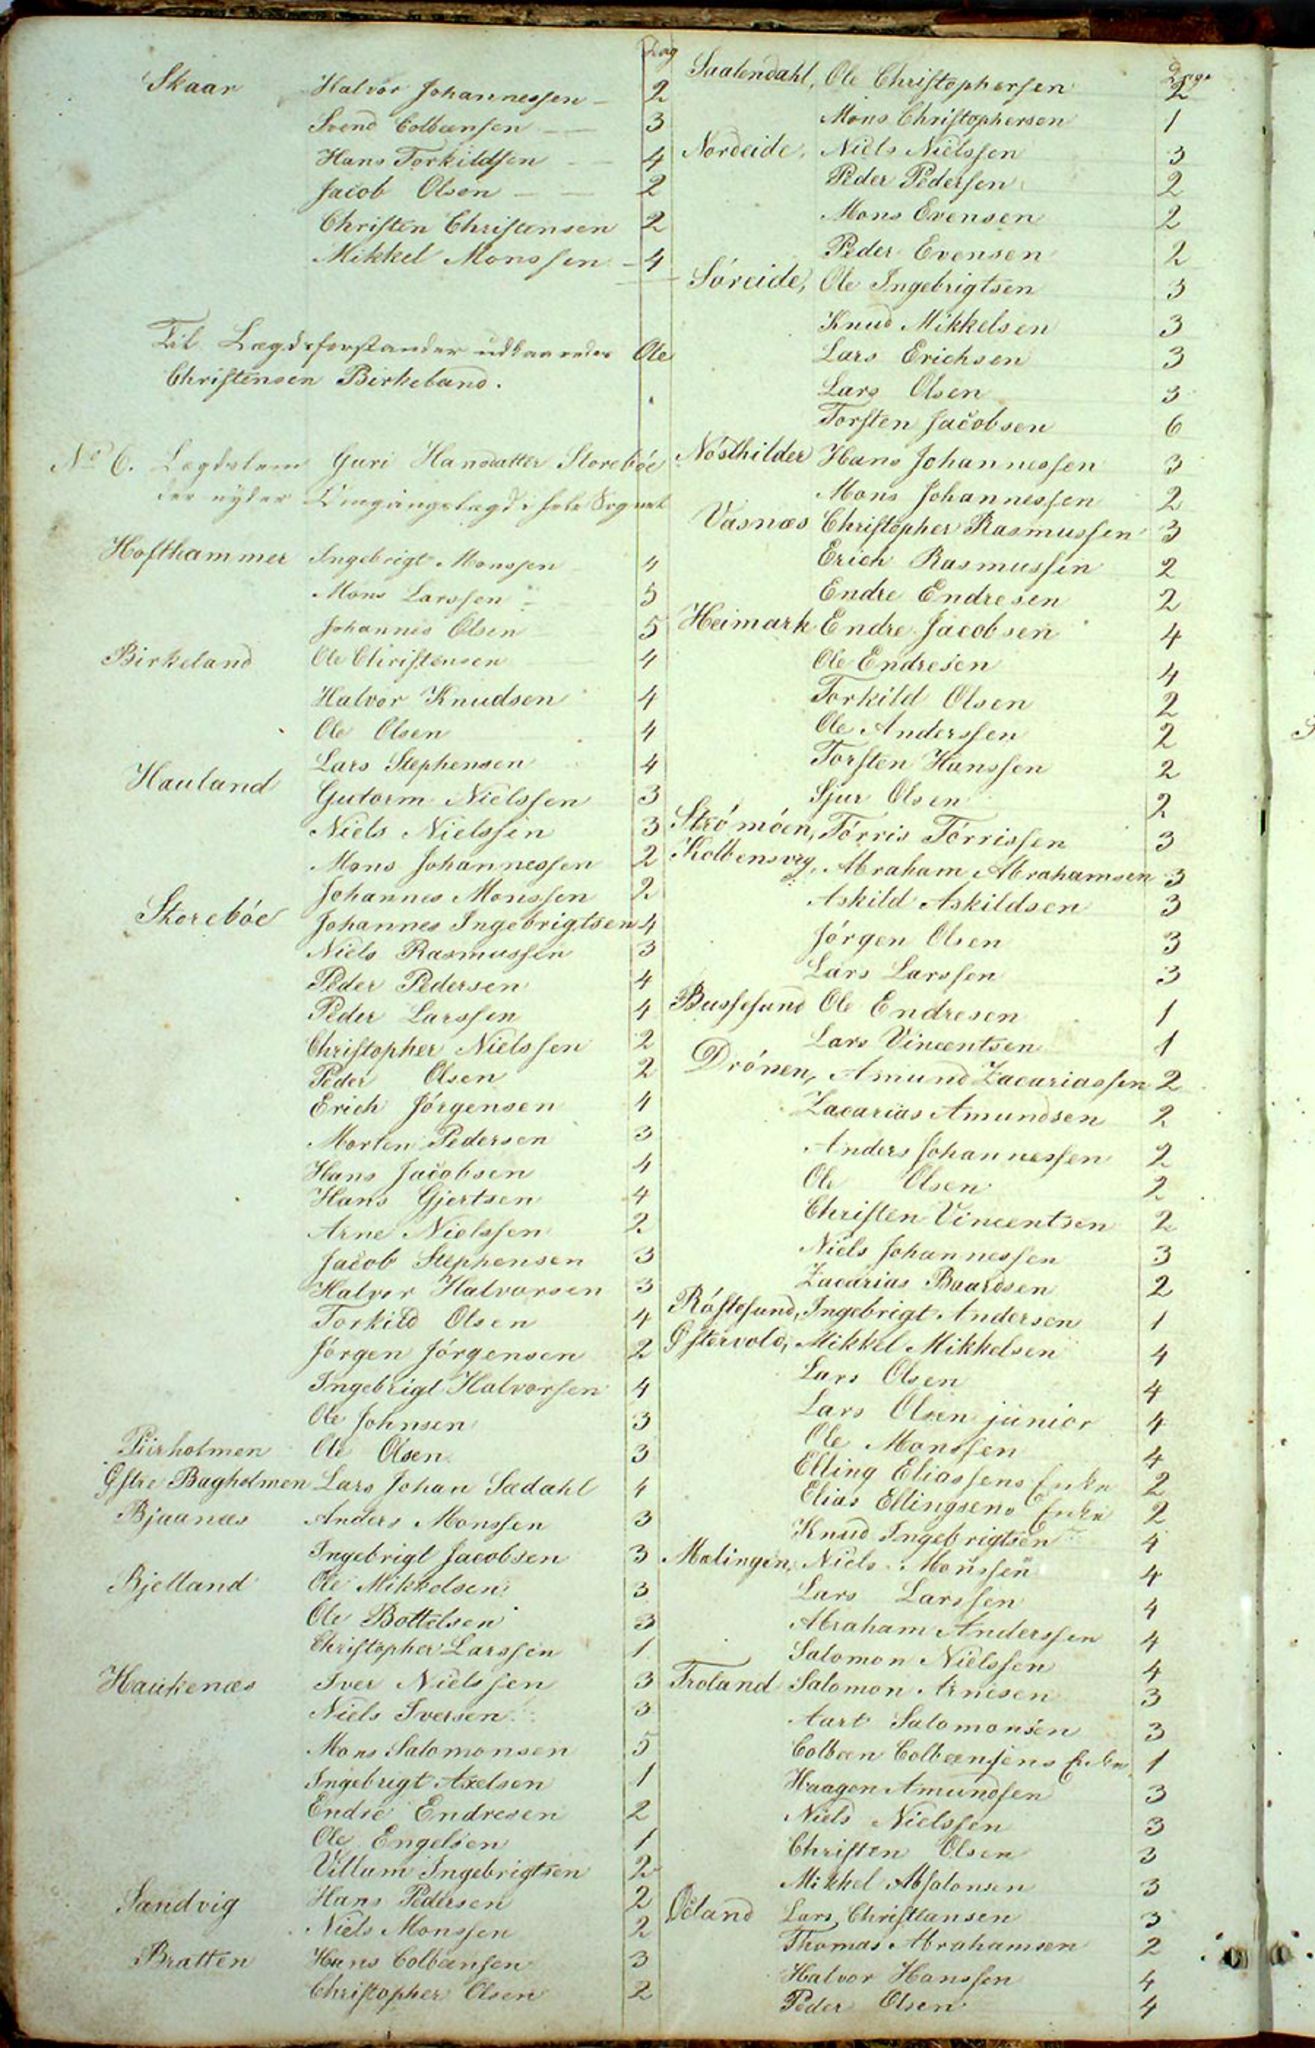 Dag
Skaar Halvor Johannessen 2
Svend Colbeensen 3
Hans Torkildsen 4
Jacob Olsen 2
Christen Christensen 2
Mikkel Monssen 4
Til Lægdsforstander udkaaredes Ole
Christensen Birkeland.
No 6. Lægdslem Guri Hansdatter Storebøe
der nyder Omgangslægd i hele Sognet
Hofthammer Ingebrigt Monssen 4
Mons Larssen 5
Johannes Olsen 5
Birkeland Ole Christensen 4
Halvor Knudsen 4
Ole Olsen 4
Lars Stephensen 4
Hauland Gutorm Nielssen 3
Niels Nielssen 3
Mons Johannessen 2
Johannes Monssen 2
Storebøe Johannes Ingebrigtsen 4
Niels Rasmussen 3
Peder Pedersen 4
Peder Larssen 4
Christopher Nielssen 2
Peder Olsen 2
Erich Jørgensen 4
Morten Pedersen 3
Hans Jacobsen 4
Hans Gjertsen 4
Arne Nielssen 2
Jacob Stephensen 3
Halvor Halvorsen 3
Torkild Olsen 4
Jørgen Jørgensen 2
Ingebrigt Halvorsen 4
Ole Johnsen 3
Piirholmen Ole Olsen 3
Østre Bagholmen Lars Johan Sædahl 4
Bjaanæs Anders Monssen 3
Ingebrigt Jacobsen 3
Bjelland Ole Mikkelsen 3
Ole Bottelsen 3
Christopher Larssen 1
Haukenæs Iver Nielssen 3
Niels Iversen 3
Mons Salomonsen 5
Ingebrigt Axelsen 1
Endre Endresen 2
Ole Engelsen 1
Villum Ingebrigtsen 2
Sandvig Hans Pedersen 2
Niels Monssen 2
Bratten Hans Colbeensen 3
Christopher Olsen 2
Dage
Saatendahl, Ole Christophersen 2
Mons Christophersen 1
Nordeide, Niels Nielssen 3
Peder Pedersen 2
Mons Evensen 2
Peder Evensen 2
Søreide, Ole Ingebrigtsen 3
Knud Mikkelsen 3
Lars Erichsen 3
Lars Olsen 3
Torsten Jacobsen 6
Nøsthilder Hans Johannessen 3
Mons Johannessen 2
Vasnæs Christopher Rasmussen 3
Erich Rasmussen 2
Endre Endresen 2
Heimark Endre Jacobsen 4
Ole Endresen 4
Torkild Olsen 2
Ole Anderssen 2
Torsten Hanssen 2
Sjur Olsen 2
Strømøen, Tørris Tørrissen 3
Kolbensvig, Abraham Abrahamsen 3
Askild Askildsen 3
Jørgen Olsen 3
Lars Larssen 3
Bussesund Ole Endresen 1
Lars Vincentsen 1
Drønen, Amund Zacariassen 2
Zacarias Amundsen 2
Anders Johannessen 2
Ole Olsen 2
Christen Vincentsen 2
Niels Johannessen 3
Zacarias Baardsen 2
Røstesund, Ingebrigt Andersen 1
Østervold, Mikkel Mikkelsen 4
Lars Olsen 4
Lars Olsen junior 4
Ole Monssen 4
Elling Eliassens Enke 2
Elias Ellingsens Enke 2
Knud Ingebrigtsen 4
Mælingen, Niels Monssen 4
Lars Larssen 4
Abraham Anderssen 4
Salomon Nielssen 4
Troland Salomon Arnesen 3
Aart Salomonsen 3
Colbeen Colbeensens Enke 1
Haagen Amundsen 3
Niels Nielssen 3
Christen Olsen 3
Mikkel Absalonsen 3
Oeland Lars Christiansen 3
Thomas Abrahamsen 2
Halvor Hanssen 4
Peder Olsen 4